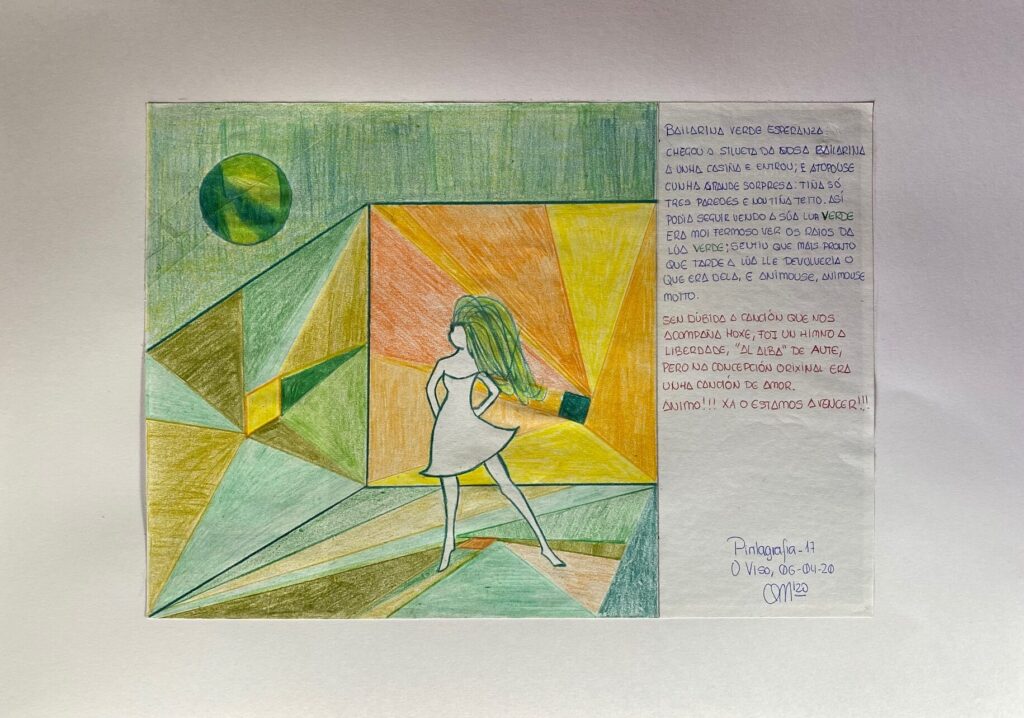 BAILARINA VERDE ESPERANZA.
CHEGOU A SILUETA DA NOSA BAILARINA
A UNHA CASIÑA E ENTROU; E ATOPOUSE
CUNHA GRANDE SORPRESA: TIÑA SÓ
TRES PAREDES E NON TIÑA TEITO. ASÍ
PODIA SEGUIR VENDO A SÚA LUA VERDE
ERA MOI FERMOSO VER OS RAIOS DA
LÚA VERDE; SENTIU QUE MAIS PRONTO
QUE TARDE A LÚA LLE DEVOLVERIA O
QUE ERA DELA, E ANIMOUSE, ANIMOUSE
MOITO.
SEN DÚBIDA A CANCIÓN QUE NOS
ACOMPAÑA HOXE, FOI UN HIMNO A
LIBERDADE, "AL ALBA" DE AUTE,
PERO NA CONCEPCIÓN ORIXINAL ERA
UNHA CANCIÓN DE AMOR.
ANIMO!!! XA O ESTAMOS A VENCER!!!
Pintagrafia-17
O Viso, 06-04-20
'20